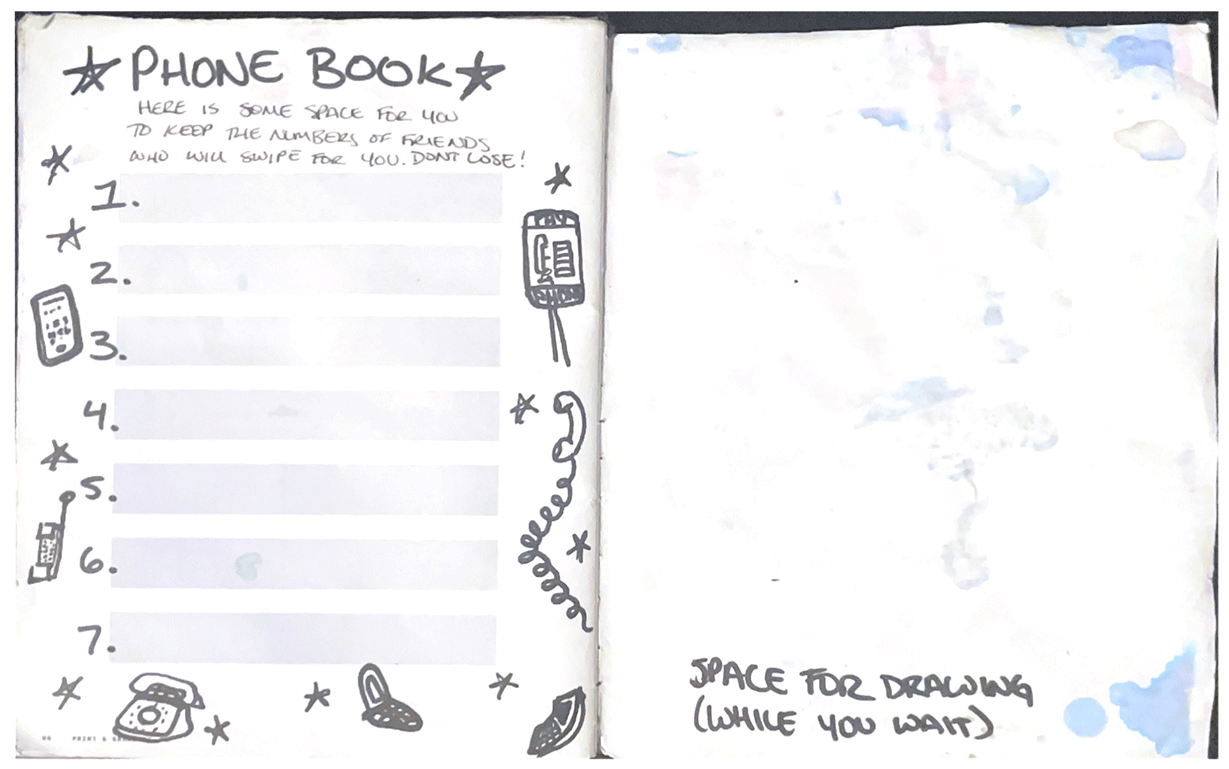 PHONE BOOK
HERE IS SOME SPACE FOR YOU
TO KEEP THE NUMBERS OF FRIENDS
WHO WILL SWIPE FOR YOU. DONT LOSE!
1.
2.
3.
4.
5.
6.
7.
PAY
PHONE
PRINT &
SPACE FOR DRAWING
(WHILE YOU WAIT)